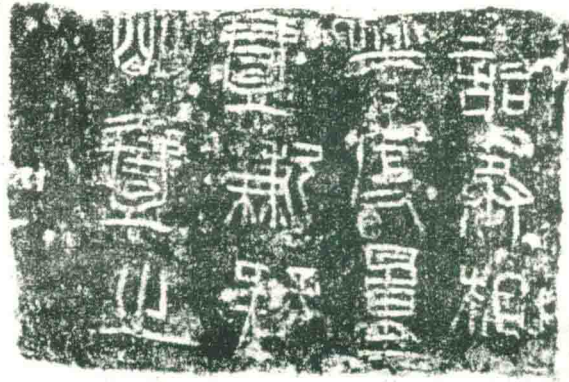 詔丞相
灋度量
壹歉疑
明壹之